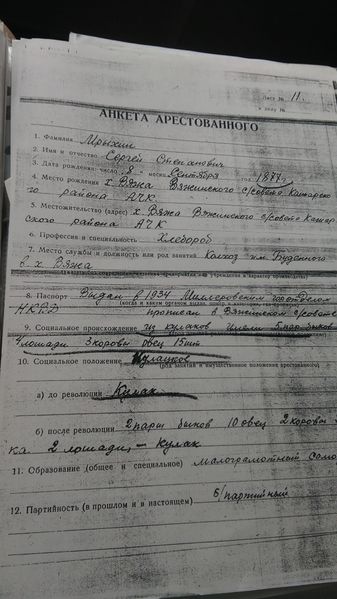 Лист № 11.
к делу №
АНКЕТА АРЕСТОВАННОГО
1. Фамилия Мрыхин
2. Имя и отчество Сергей Степанович
3. Дата рождения: число 8 месяц Сентября год 1887
4. Место рождения х. Вяжа Вяжинского с/совета Кашарско
го района АЧК
5. Местожительство (адрес) х Вяжа Вяжинского с/совета Кашар
ского района АЧК
6. Профессия и специальность Хлебороб
7. Место службы и должность или род занятий Колхоз им. Буденного
в х Вяжа
8. Паспорт Выдан в 1934 Миллеровским горотделом
(когда и каким органом выдан, номер
НКВД прописан в Вяжинском с/совете
9. Социальное происхождение из кулаков имели 5 пар быков
лошади 3 коровы овец 15 шт
10. Социальное положение Кулацков
(род занятий и имущественное положение арестованного)
а) до революции Кулак
б) после революции 2 пары быков 10 овец 2 коровы
ка. 2 лошади, - Кулак
11. Образование (общее и специальное) малограмотный
12. Партийность (в прошлом и в настоящем) б/партийный